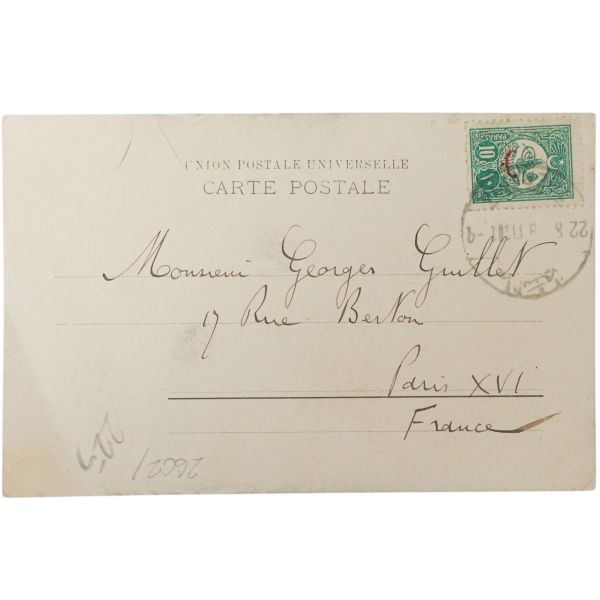 UNION POSTALE UNIVERSELLE
CARTE POSTALE
10 PARAS 10
Monsieur Georges Guillet
17 Rue Berton
Paris XVI
France
2602/